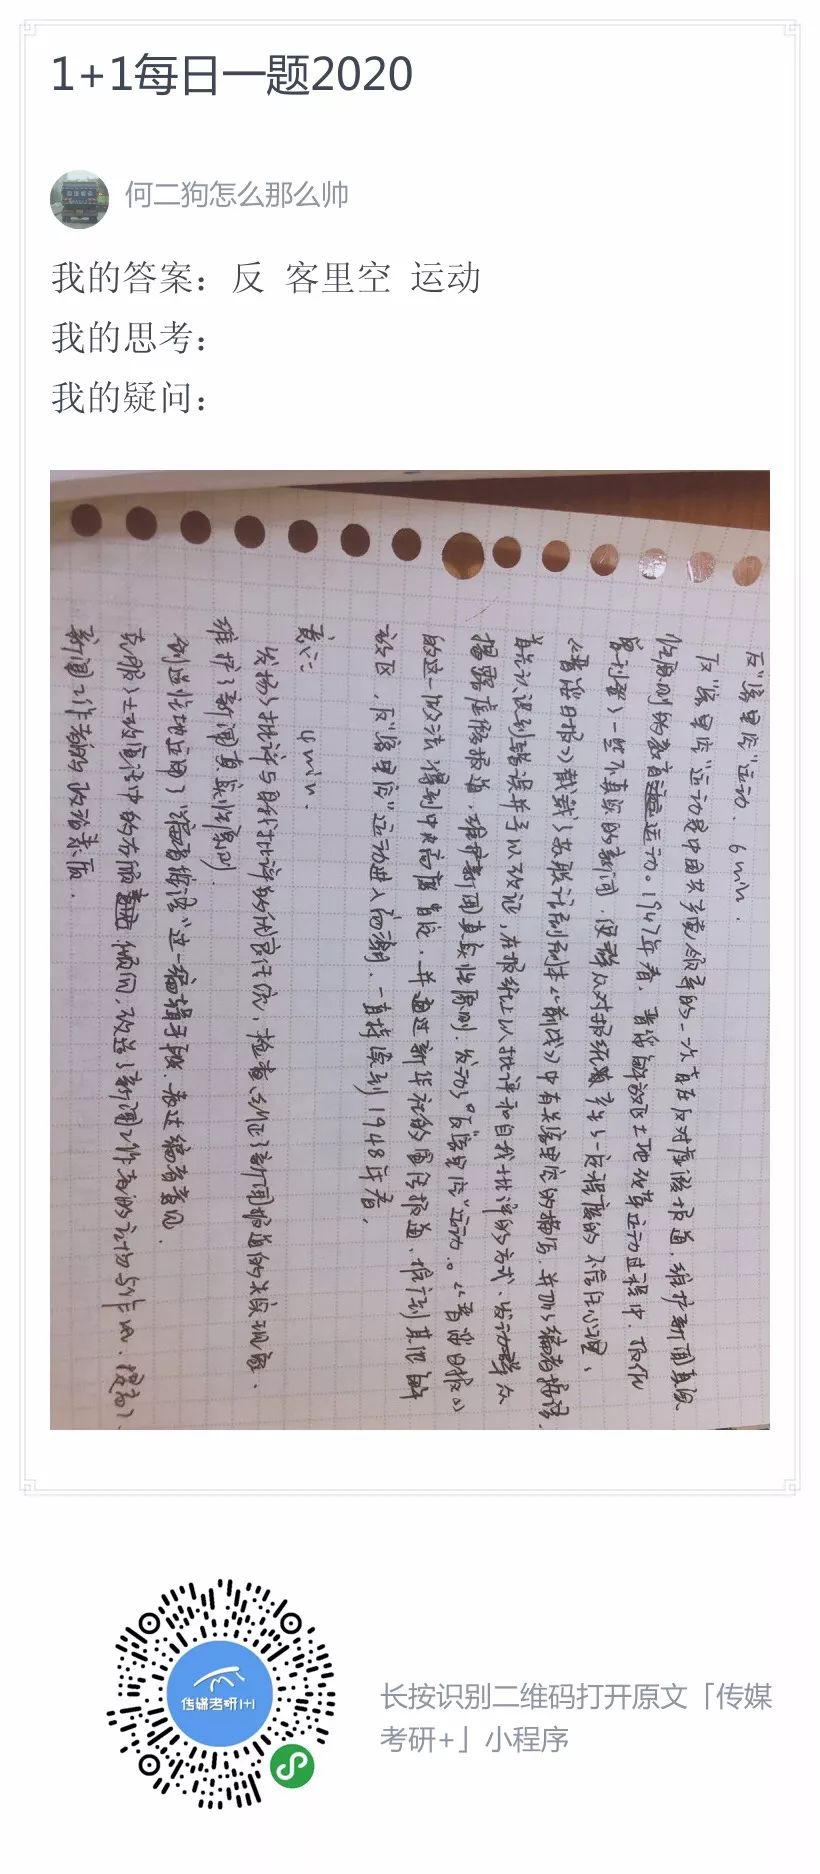 1+1每日一题2020
何二狗怎么那么帅
我的答案：反 客里空 运动
我的思考：
我的疑问：
反“客里空”运动. 6min.
反“客里空”运动是中国共产党领导的一次旨在反对虚假报道、维护新闻真实
性原则的教育运动。1947年春，晋绥解放区土地改革运动过程中，
一些不真实的新闻，使群众对报纸产生了一定程度的不信任心理，
《晋绥日报》载了苏联剧本《前线》中有关客里空的描写，并加了编者按语，
认识到错误并予以改正，在报纸上以批评和自我批评的方式、发动群众
揭露虚假报道，维护新闻真实性原则，发动了“反客里空”运动。《晋绥日报》
的这一做法得到中共高度肯定，并通过新华社的宣传报道，推广到其他解
放区，反“客里空”运动进入高潮，一直持续到1948年春，
意义： 4min.
发扬了批评与自我批评的优良传统，检查纠正了新闻报道的失实现象.
维护了新闻真实性原则.
创造性地运用了“编者按语”这一编辑手段，表达编者意见.
克服了土改宣传中的右倾倾向，改造了新闻工作者的立场与作风，提高了
新闻工作者的政治素质.
传媒考研1+1
长按识别二维码打开原文「传媒
考研+」小程序